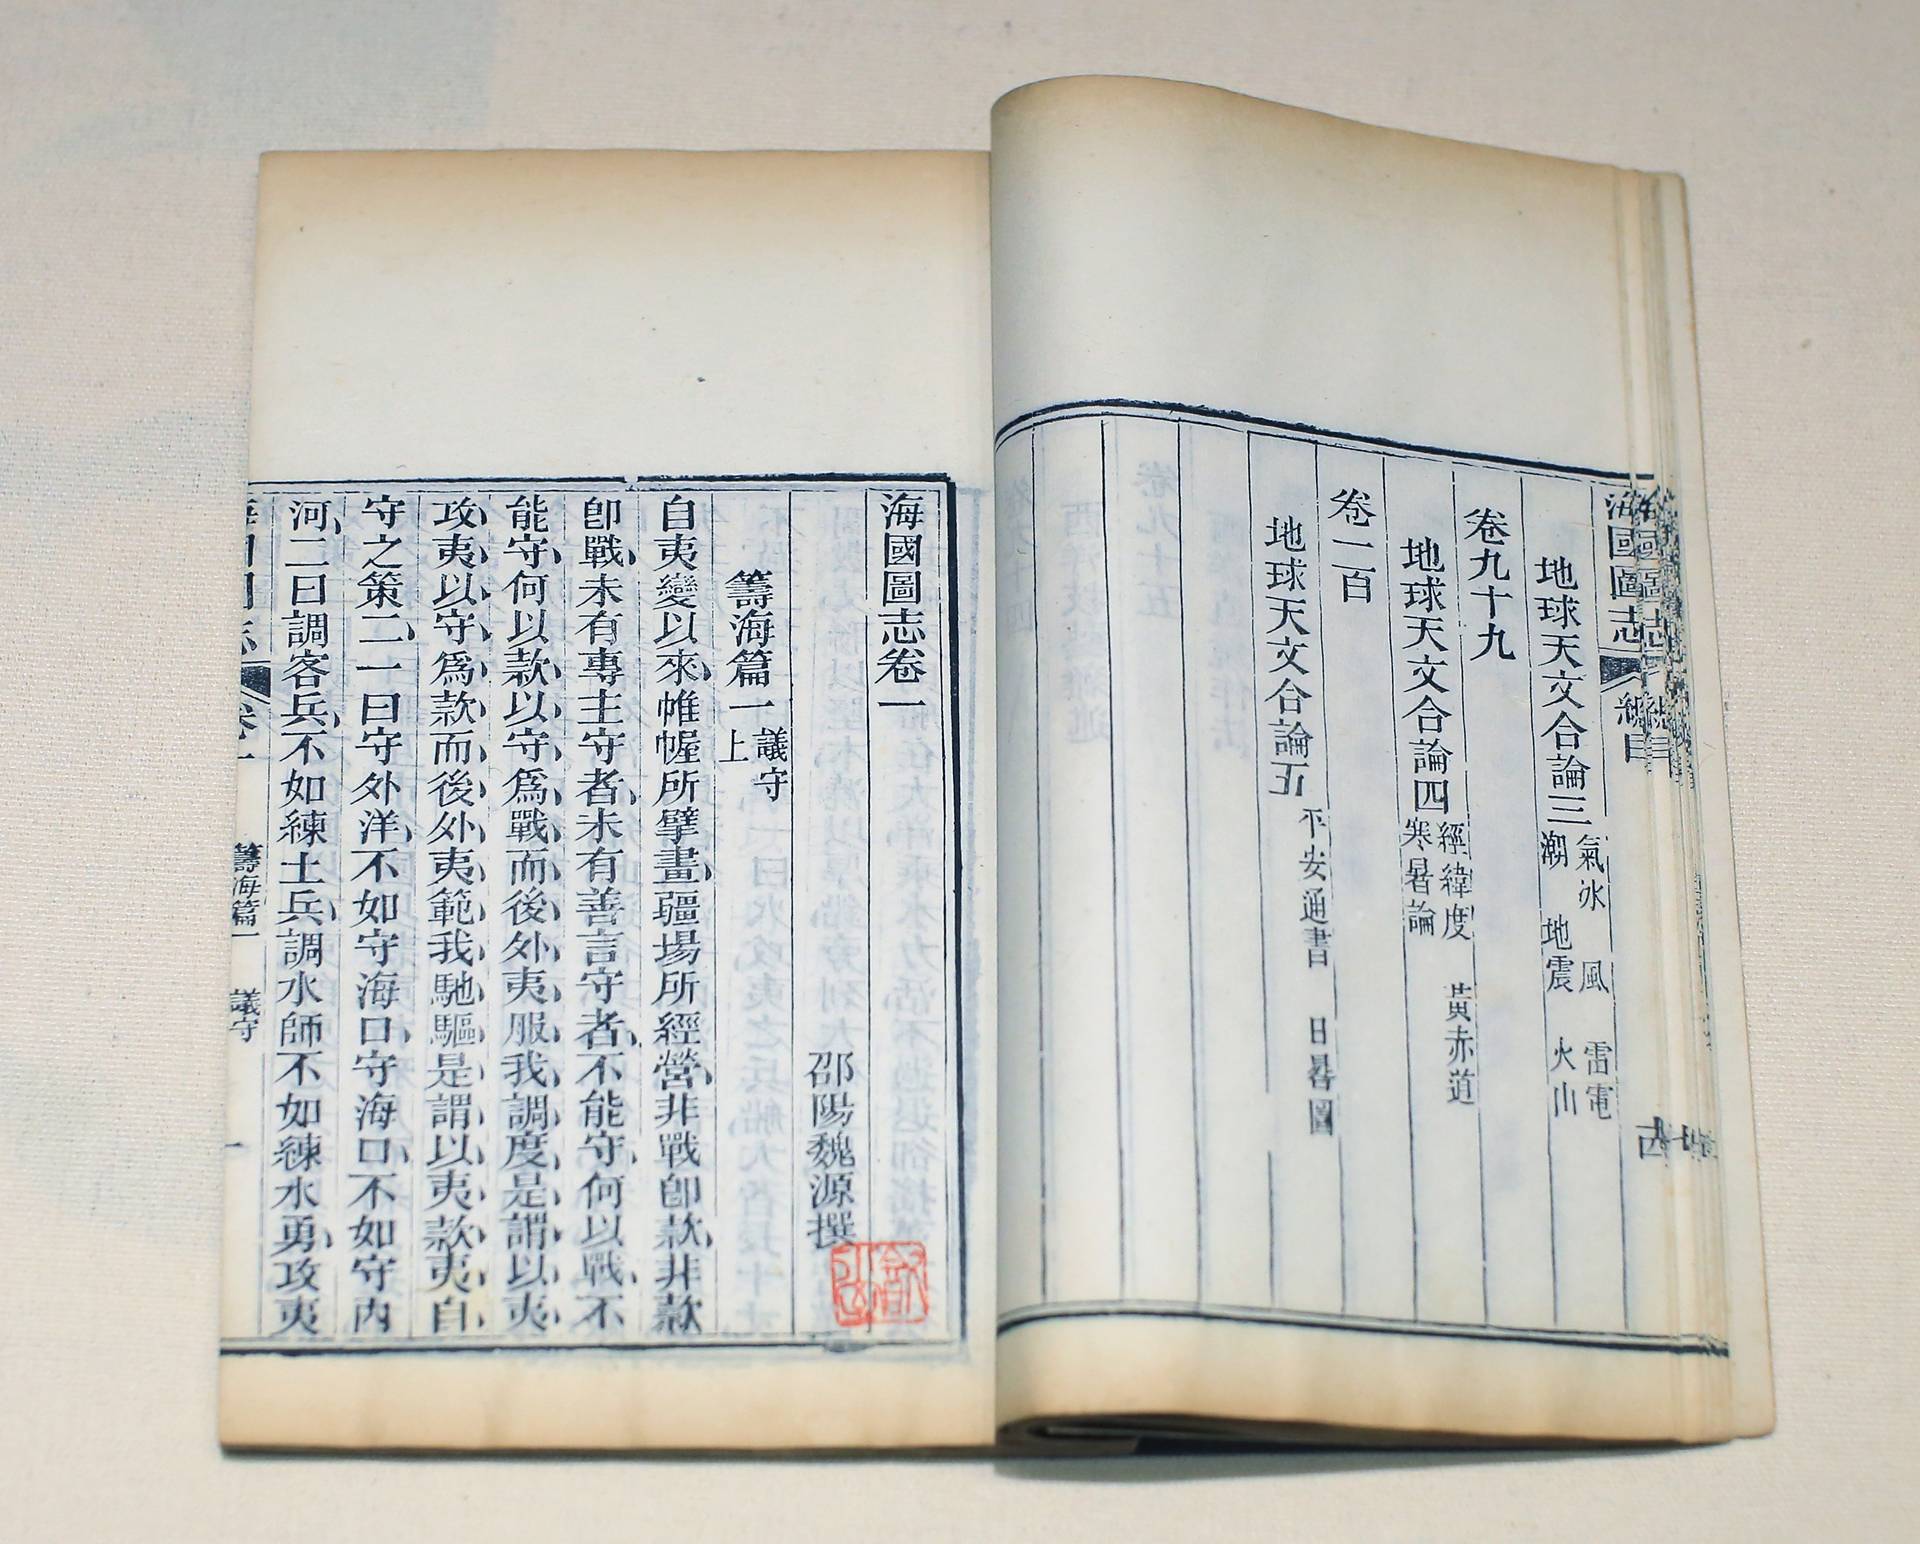 海國圖志
總目
地球天文合論三
氣 氷 風 雷電
潮 地震 火山
卷九十九
地球天文合論四
經緯度 黃赤道
寒暑論
卷一百
地球天文合論五
平安通書 日晷圖
海國圖志卷一
邵陽魏源撰
籌海篇一
議守
上
自夷變以來帷幄所擘畫疆場所經營非戰卽款非款
卽戰未有專主守者未有善言守者不能守何以戰不
能守何以款以守爲戰而後外夷服我調度是謂以夷
攻夷以守爲款而後外夷範我馳驅是謂以夷款夷自
守之策二一曰守外洋不如守海口守海口不如守內
河二曰調客兵不如練土兵調水師不如練水勇攻夷
卷一
籌海篇一
議守
一